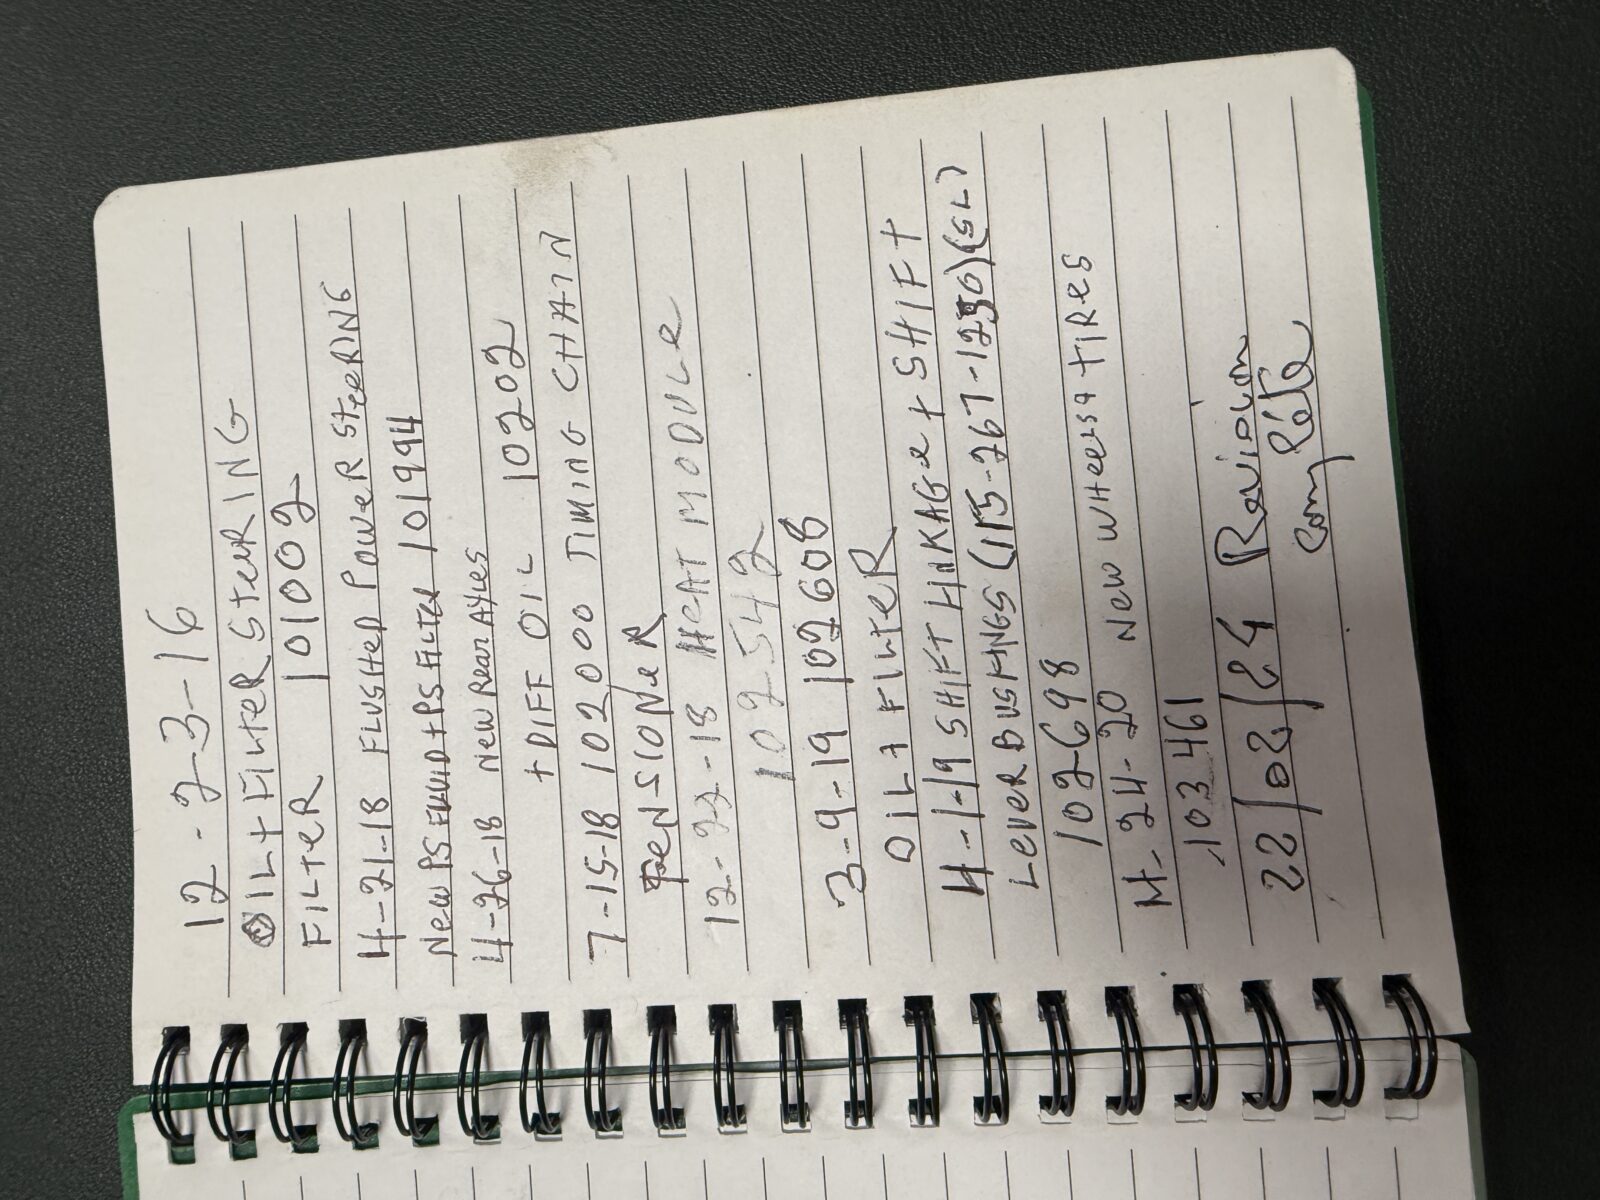 12-23-16
OIL+FILTER STEERING
FILTER 101002
4-21-18 FLUSHED POWER STEERING
NEW PS FLUID+PS FILTER 101994
4-26-18 NEW REAR AXLES
+DIFF OIL 10202
7-15-18 102000 TIMING CHAIN
TENSIONER
12-22-18 HEAT MODULE
102542
3-9-19 102608
OIL+FILTER
4-1-19 SHIFT LINKAGE + SHIFT
LEVER BUSHINGS (115-267-1250)(SL)
102698
24-20 NEW WHEELS+TIRES
103461
22/02/24 Revision
Compléte